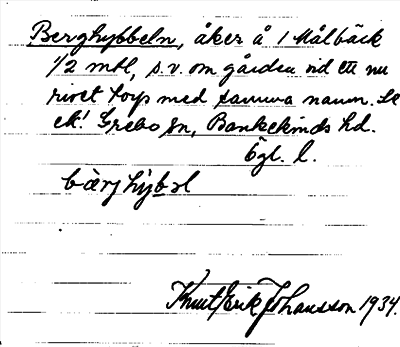 Berghybbeln, åker å 1 Målbäck
1/2 mtl, s.v. om gården vid ett nu
rivet torp med samma namn. Se
ek! Grebo sn, Bankekinds hd.
Ögl. l.
bärjhyb̲əl
Knut Erik Johansson 1934.